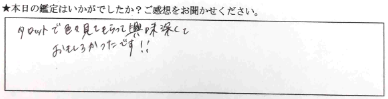 ★本日の鑑定はいかがでしたか？ご感想をお聞かせください。
タロットで色々見てもらって興味深くて
おもしろかったです!!